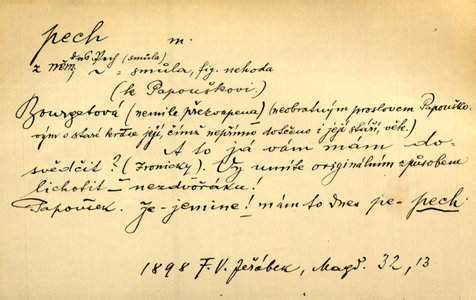 pech m.
das Pech (smůla)
z něm. ~ = smůla, fig. nehoda
(k Papouškovi.)
Bourgetová (nemile překvapena) (neobratným proslovem Papouško-
vým o staré krůtě její, čímž nepřímo dotčeno i její stáří, věk.)
A to já vám mám do-
svědčit? (Ironicky). Vy umíte originálním způsobem
lichotit – nezdvořáku!
Papoušek. Je-jemine! mám to dnes pe-pech.
1898 F. V. Jeřábek, Magd. 32, 13